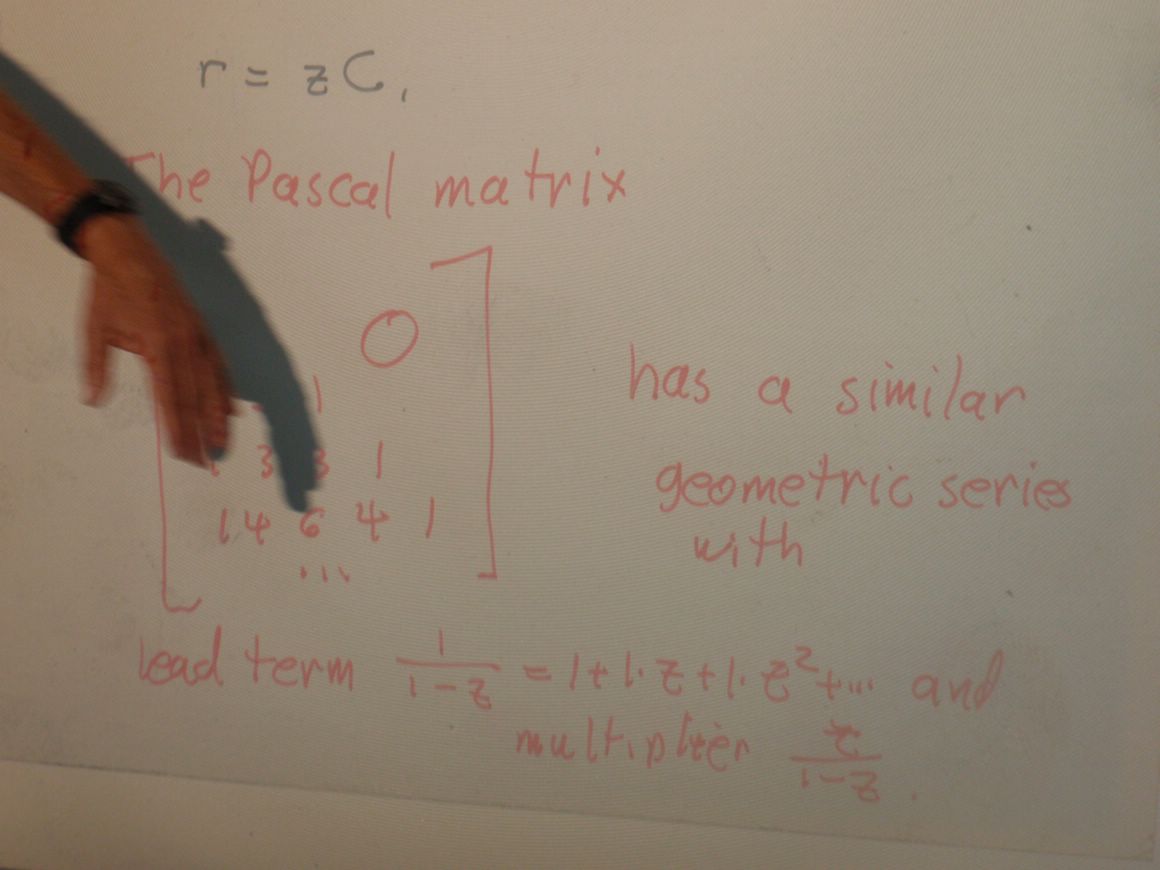 r = zC,
The Pascal matrix
0
1
3 3 1
1 4 6 4 1
...
has a similar
geometric series
with
lead term 1/(1-z) = 1+1·z+1·z²+... and
multiplier z/(1-z).